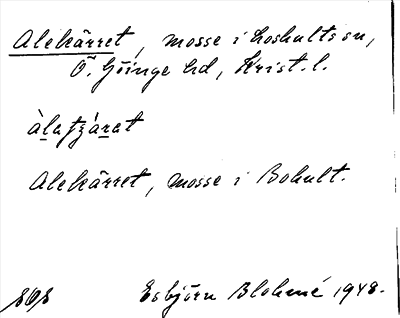 Alekärret, mosse i Loshults sn,
Ö. Göinge hd, Krist. l.
àlatzárat
Alekärret, mosse i Bohult.
Esbjörn Blohmé 1948.